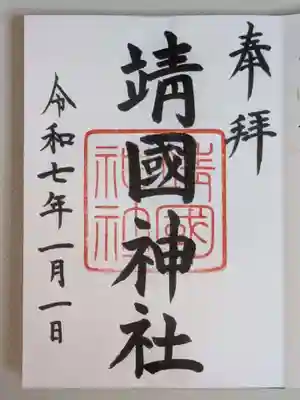 奉拝
靖國神社
靖國
神社
令和七年一月一日